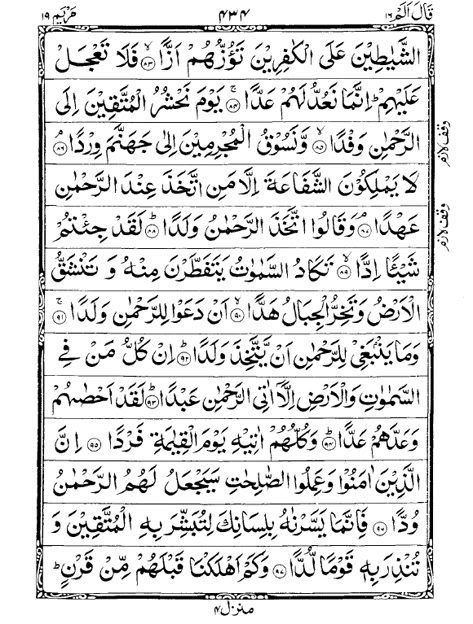 قَالَ اَلَمْ ١٦ ٤٣٤ مَرْيَم ١٩
الشَّيٰطِيْنَ عَلَى الْكٰفِرِيْنَ تَؤُزُّهُمْ اَزًّا ۙ‏﴿۸۳﴾ فَلَا تَعْجَلْ
عَلَيْهِمْ ؕ اِنَّمَا نَعُدُّ لَهُمْ عَدًّا ۚ‏﴿۸۴﴾ يَوْمَ نَحْشُرُ الْمُتَّقِيْنَ اِلَى
الرَّحْمٰنِ وَفْدًا ۙ‏﴿۸۵﴾ وَّنَسُوْقُ الْمُجْرِمِيْنَ اِلٰى جَهَنَّمَ وِرْدًا ۘ‏﴿۸۶﴾
لَا يَمْلِكُوْنَ الشَّفَاعَةَ اِلَّا مَنِ اتَّخَذَ عِنْدَ الرَّحْمٰنِ
عَهْدًا ۘ‏﴿۸۷﴾ وَقَالُوا اتَّخَذَ الرَّحْمٰنُ وَلَدًا ؕ‏﴿۸۸﴾ لَقَدْ جِئْتُمْ
شَيْئًا اِدًّا ۙ‏﴿۸۹﴾ تَكَادُ السَّمٰوٰتُ يَتَفَطَّرْنَ مِنْهُ وَ تَنْشَقُّ
الْاَرْضُ وَتَخِرُّ الْجِبَالُ هَدًّا ۙ‏﴿۹۰﴾ اَنْ دَعَوْا لِلرَّحْمٰنِ وَلَدًا ۚ‏﴿۹۱﴾
وَمَا يَنْۢبَغِيْ لِلرَّحْمٰنِ اَنْ يَّتَّخِذَ وَلَدًا ؕ‏﴿۹۲﴾ اِنْ كُلُّ مَنْ فِي
السَّمٰوٰتِ وَالْاَرْضِ اِلَّاۤ اٰتِي الرَّحْمٰنِ عَبْدًا ؕ‏﴿۹۳﴾ لَقَدْ اَحْصٰىهُمْ
وَعَدَّهُمْ عَدًّا ؕ‏﴿۹۴﴾ وَكُلُّهُمْ اٰتِيْهِ يَوْمَ الْقِيٰمَةِ فَرْدًا ﴿۹۵﴾ اِنَّ
الَّذِيْنَ اٰمَنُوْا وَعَمِلُوا الصّٰلِحٰتِ سَيَجْعَلُ لَهُمُ الرَّحْمٰنُ
وُدًّا ﴿۹۶﴾ فَاِنَّمَا يَسَّرْنٰهُ بِلِسَانِكَ لِتُبَشِّرَ بِهِ الْمُتَّقِيْنَ وَ
تُنْذِرَ بِهٖ قَوْمًا لُّدًّا ﴿۹۷﴾ وَكَمْ اَهْلَكْنَا قَبْلَهُمْ مِّنْ قَرْنٍ ؕ
منزل ٤
وقف لازم
وقف لازم